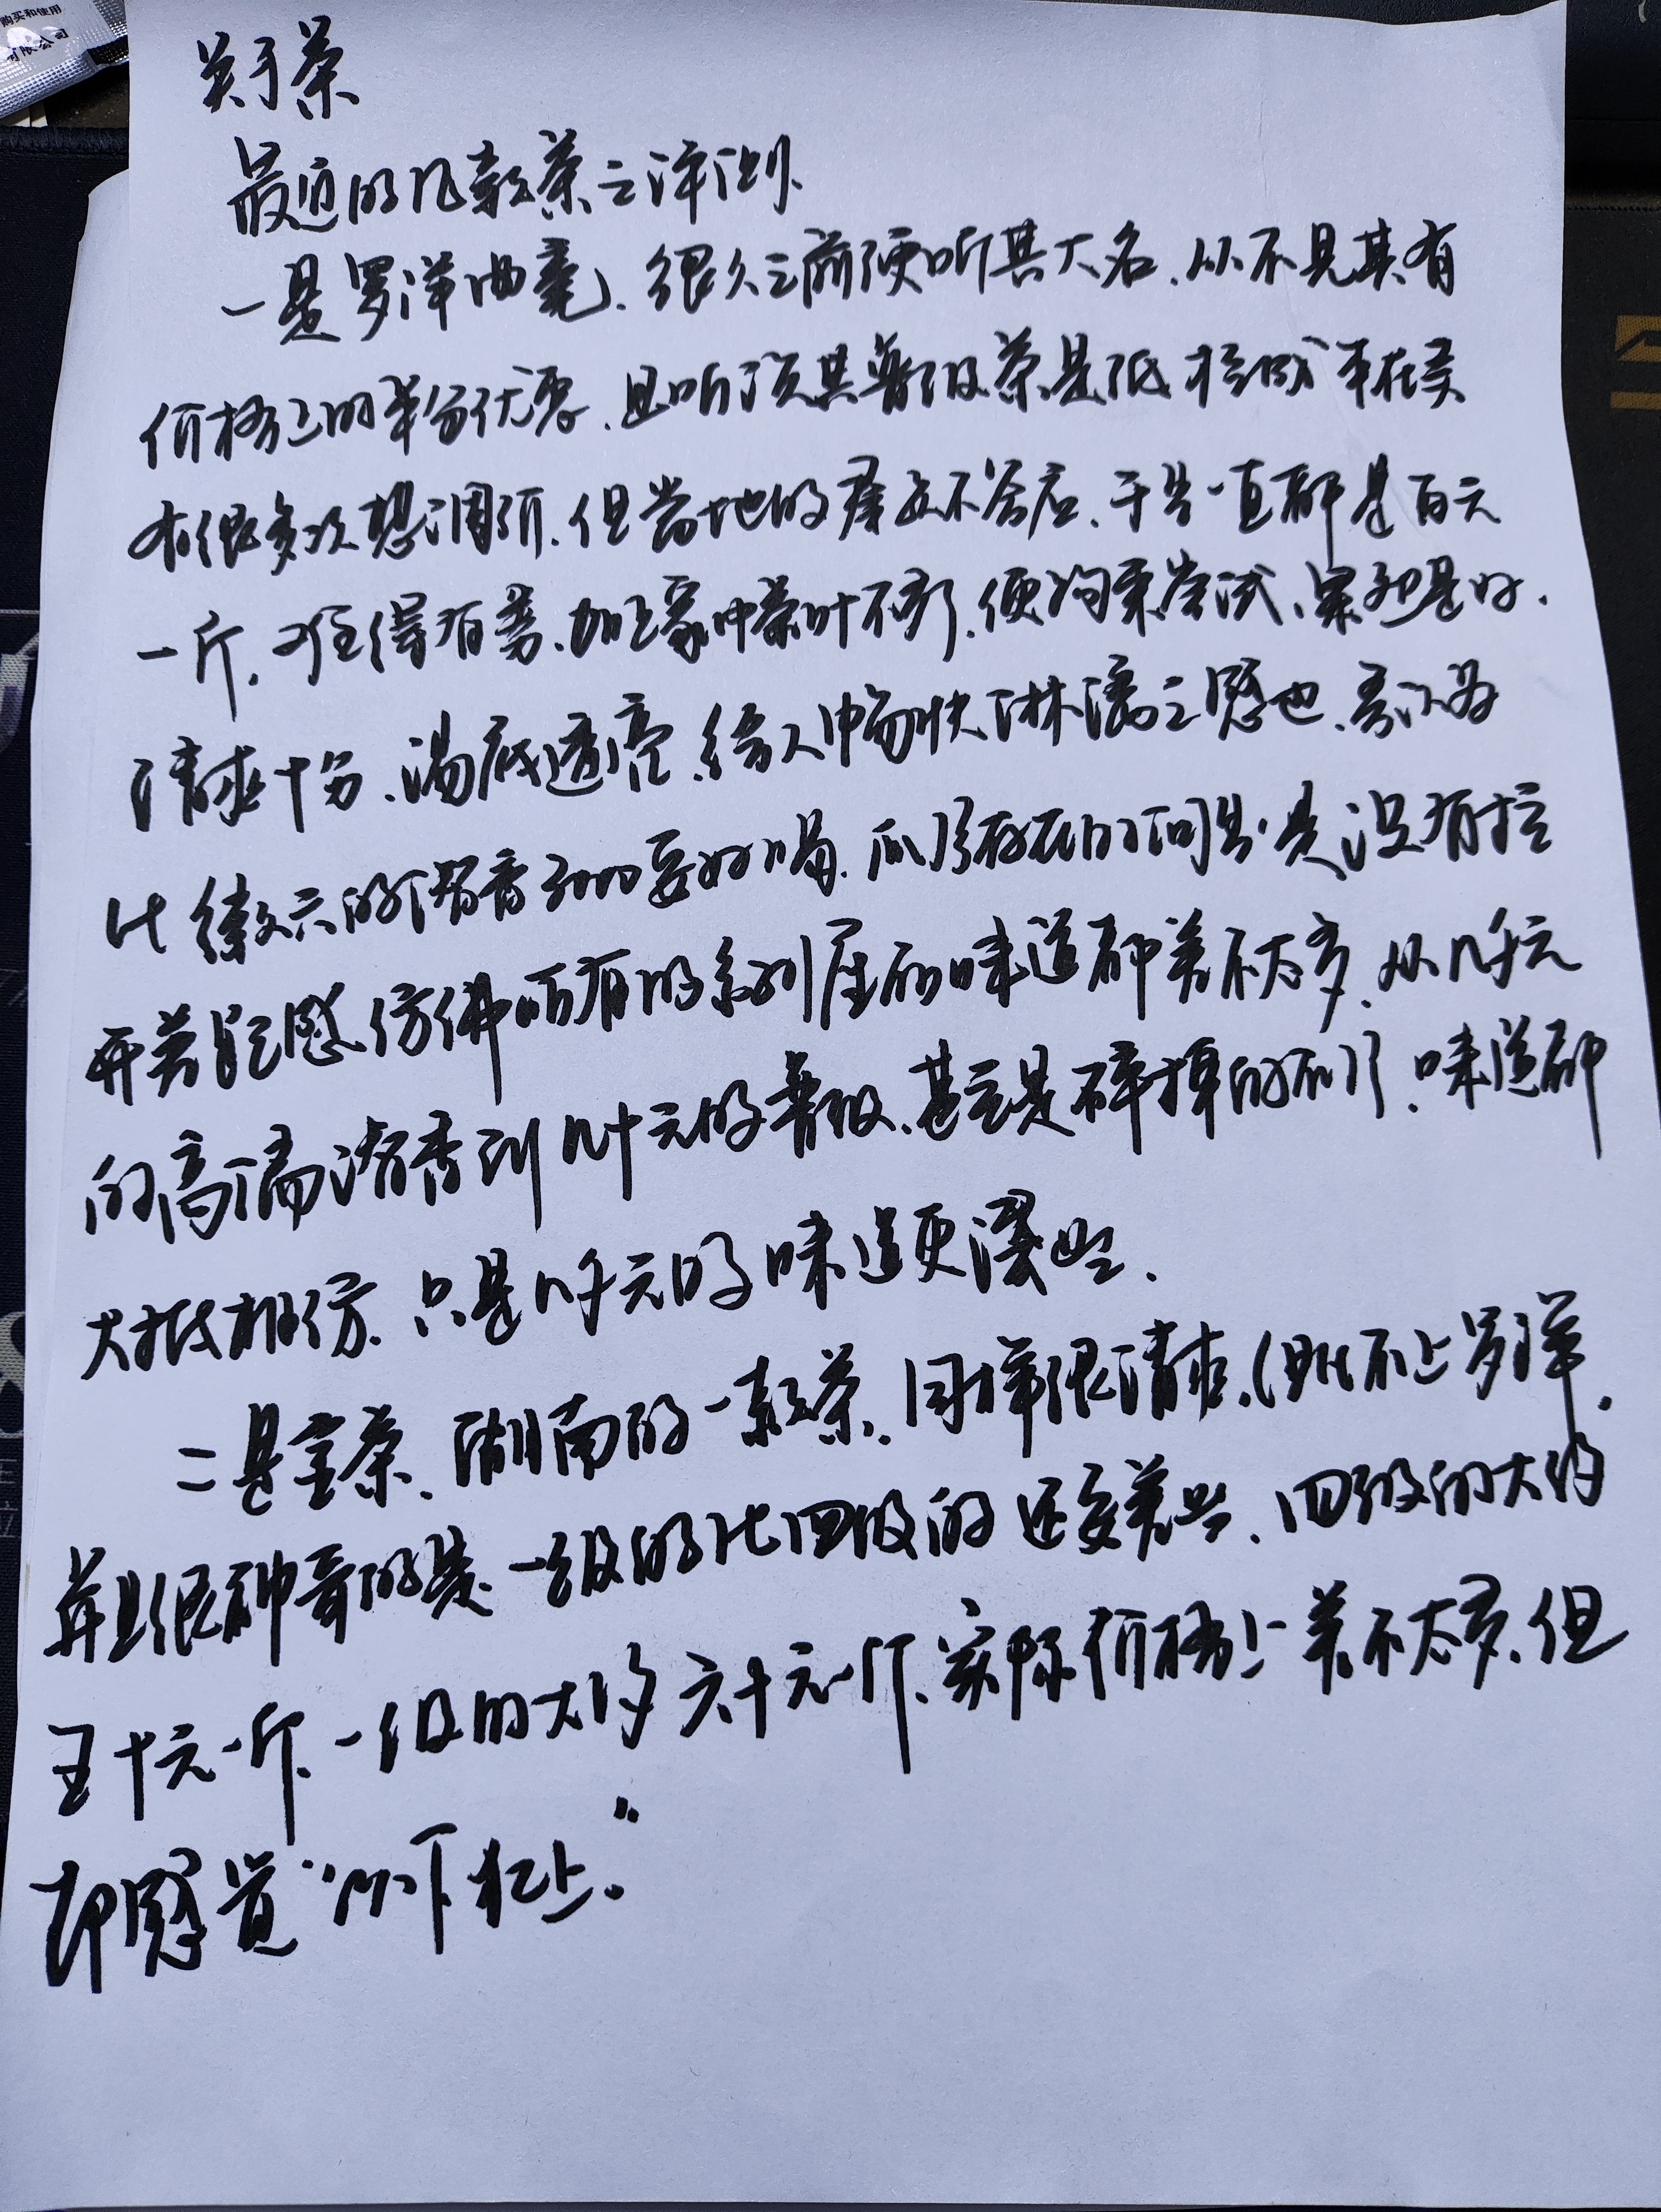 购买和使用
有限公司
关于茶
最近的几款茶之评测、
一是罗洋曲毫、很久之前便听其大名、从不见其有
价格上的半分优惠、且听说其普级茶是低
有很多次想调研、但当地的不答应、于是一直都是百元
一斤、加上家中茶叶不多了、便购来尝试、果然是好、
清爽十分、汤底透亮、给人畅快淋漓之感也、吾认为
比徽六的清香3000要好喝、瓜片存在的问题是没有拉
开差距感、仿佛所有的系列产品的味道都差不太多、从几千元
的高端清香到几十元的普级、甚至是碎掉的瓜片、味道都
大抵相仿、只是几千元的味道更浓些、
二是玲茶、湖南的一款茶、同样很清爽、(比不上罗洋、
并且很神奇的是、一级的比四级的还要差些、四级的大约
五十元一斤、一级的大约六十元一斤、实际价格上差不太多、但
却感觉